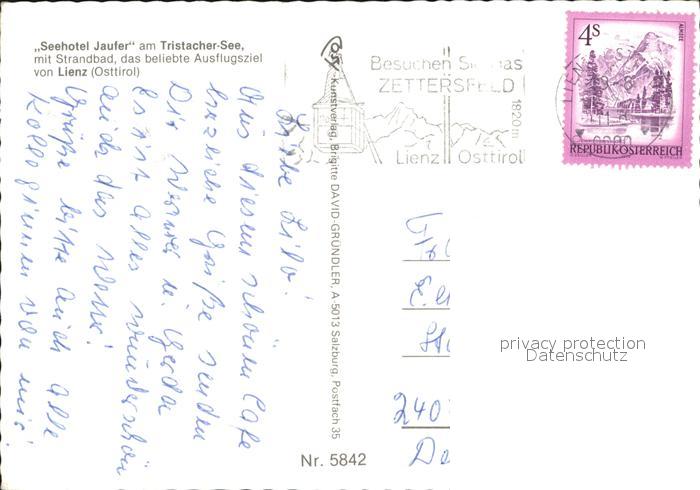 „Seehotel Jaufer“ am Tristacher-See,
mit Strandbad, das beliebte Ausflugsziel
von Lienz (Osttirol)
Liebe Lilo!
Aus diesem schönen Cafe
herzliche Grüße senden
Dir Werner u. Gerda
Es ist alles wunderschön
auch das Wetter!
Grüße bitte auch alle
Kolleginnen von mir!
Ossi-kunstverlag, Brigitte DAVID-GRÜNDLER, A-5013 Salzburg, Postfach 35
Nr. 5842
Besuchen Sie das
ZETTERSFELD
1820m
Lienz Osttirol
4S
ALMSEE
REPUBLIK ÖSTERREICH
LIENZ
240
privacy protection
Datenschutz